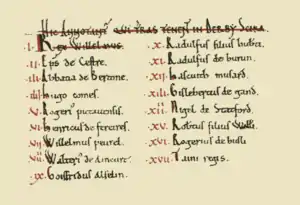 HIC ANNOTANT' TENENT IN DERBY SCIRE
.I. Rex Willelmus.
.II. Eps de Cestre.
.III. Abbatia de Bertone.
.IIII. Hugo comes.
.V. Rogeri' pictauensis.
.VI. Henricus de ferreres.
.VII. Willelmus peurel.
.VIII. Walteri' de Aincurt.
.IX. Goisfridus Alselin.
.X. Radulfus filius huberti.
.XI. Radulfus de burun.
.XII. hascuith musard.
.XIII. Gislebertus de gand.
.XIIII. Nigel de Statford.
.XV. Robtus filius Willi.
.XVI. Rogerius de busli.
.XVII. Taini regis.